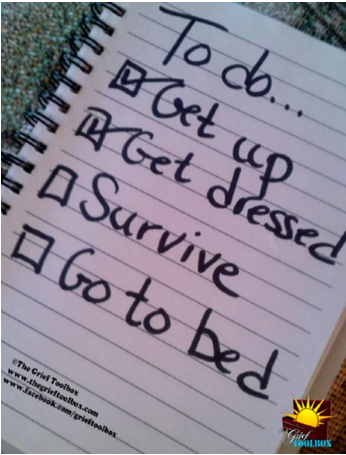 To do...
Get up
Get dressed
Survive
Go to bed
©The Grief Toolbox
www.thegrieftoolbox.com
www.facebook.com/grieftoolbox
The
Grief
TOOLBOX